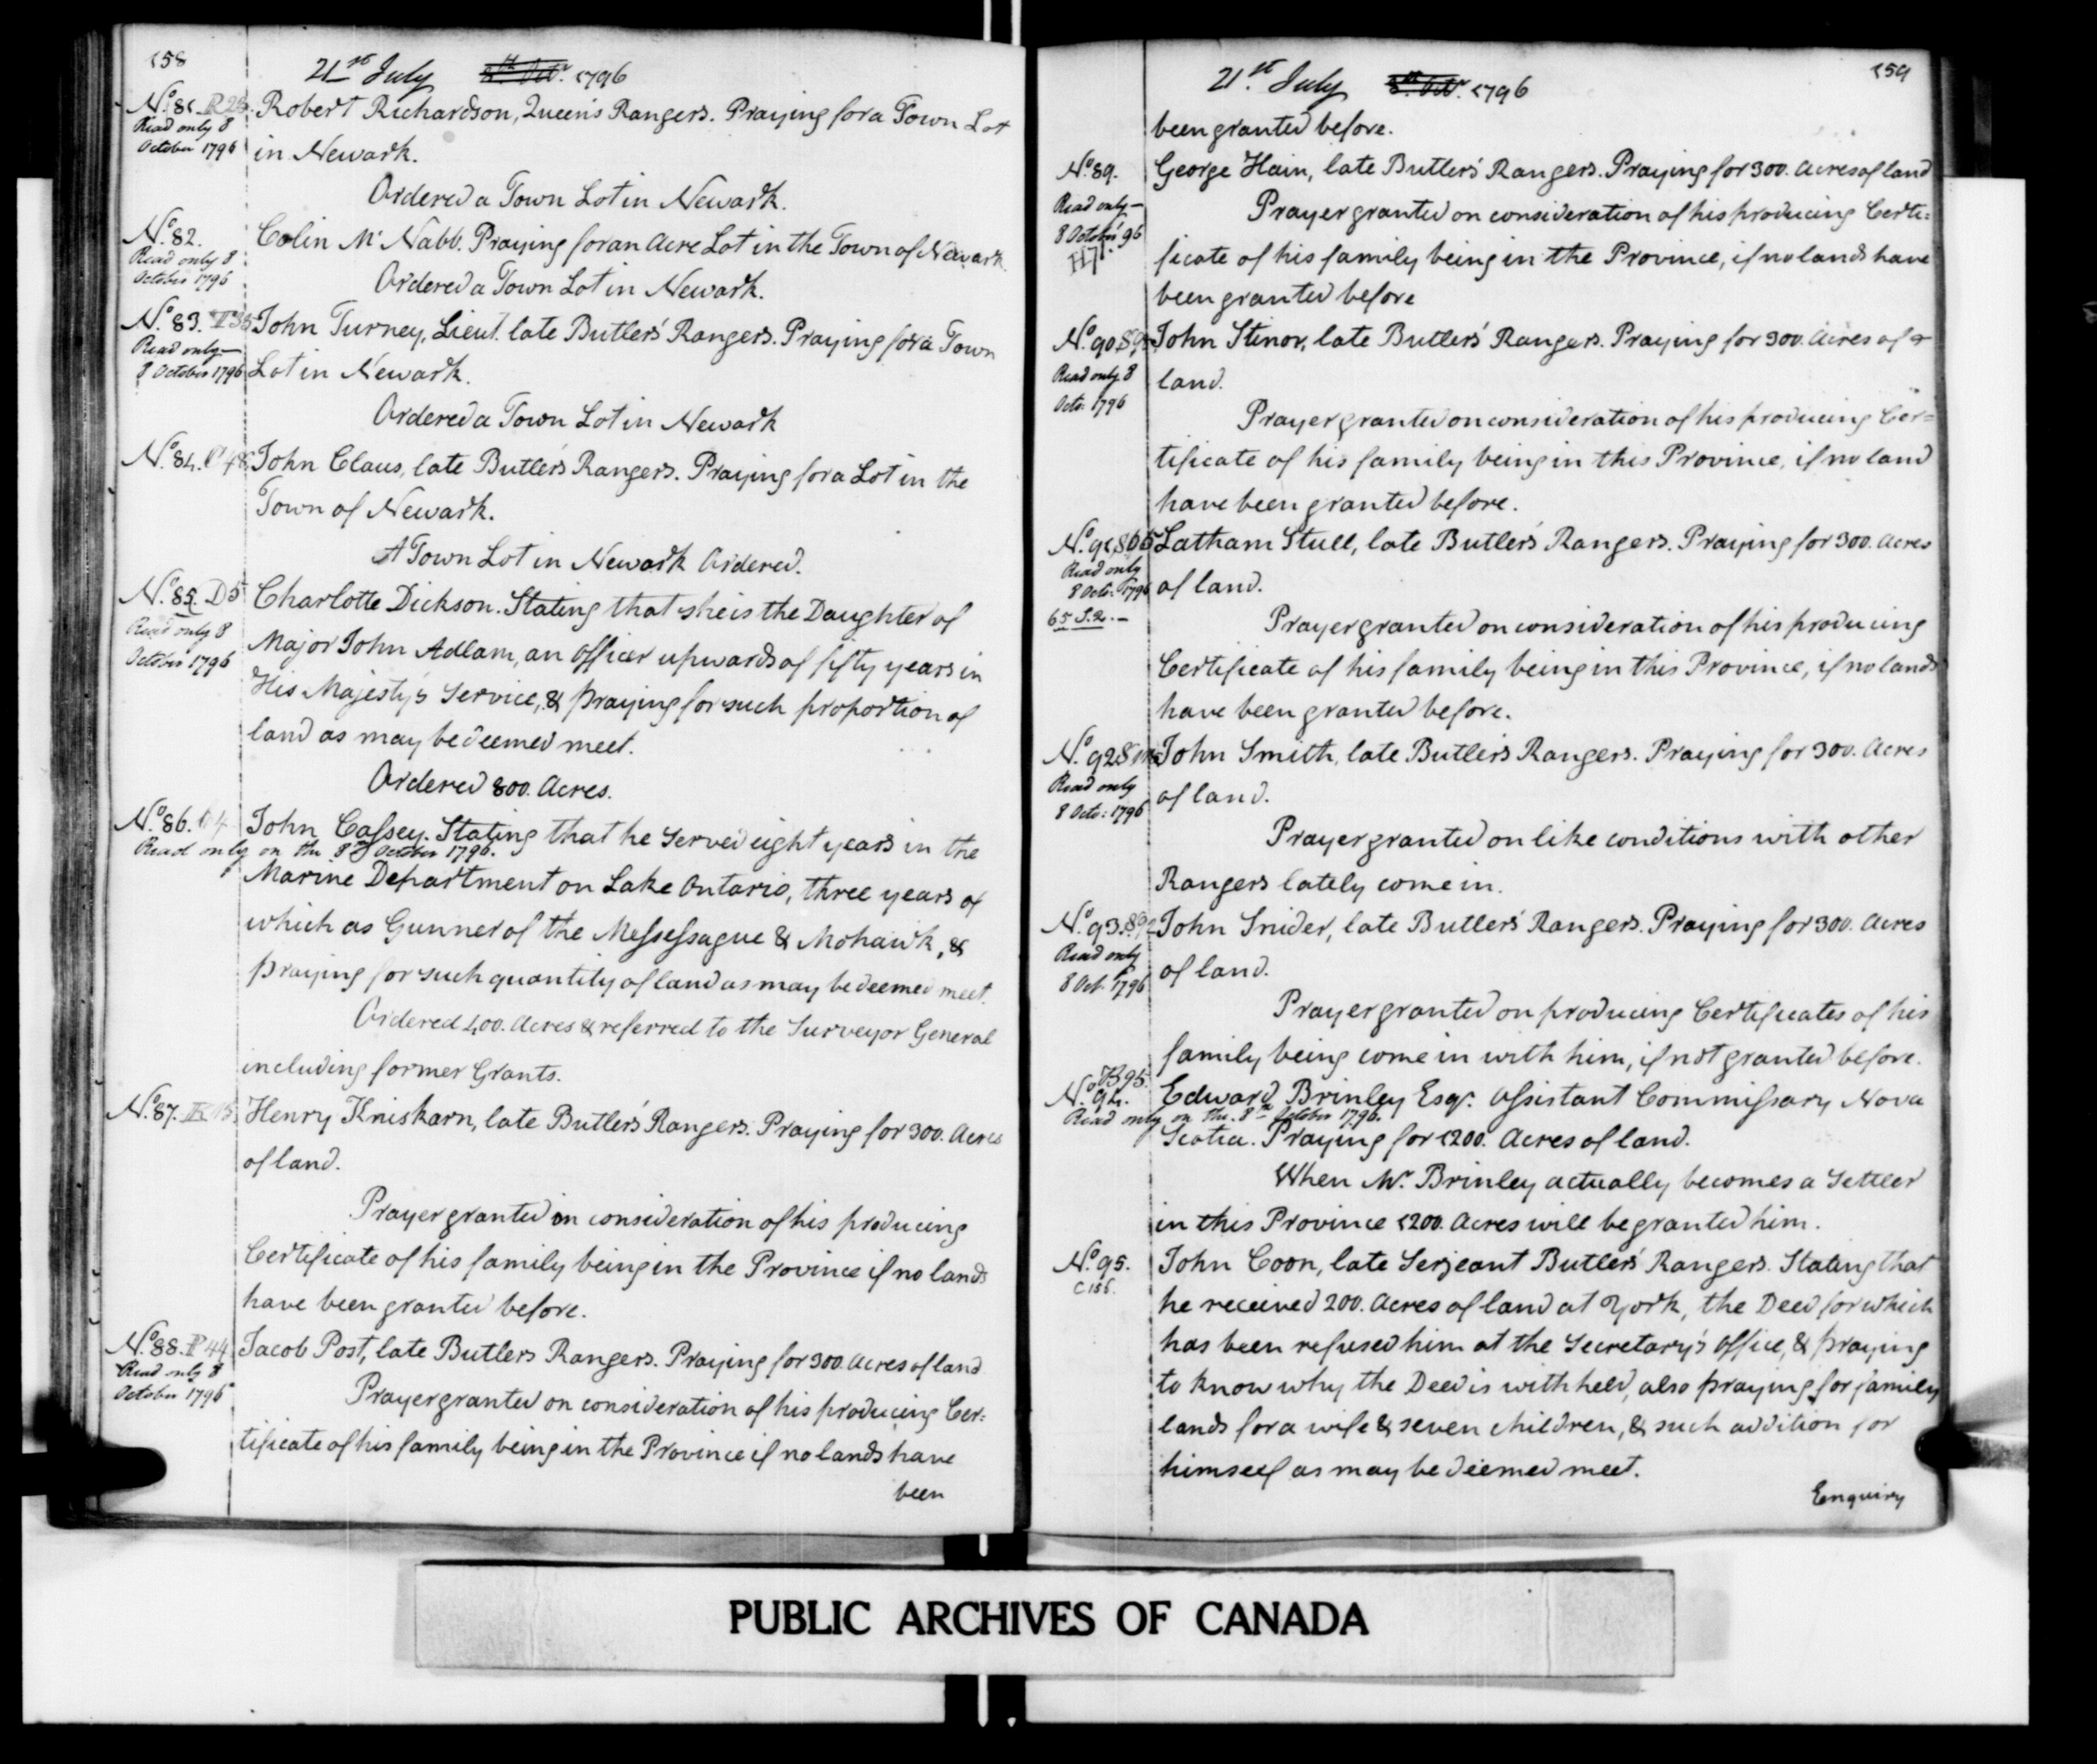 158
21st July 8th Octr. 1796
No. 81. R25. Robert Richardson, Queen's Rangers. Praying for a Town Lot
Read only 8
October 1796
in Newark.
Ordered a Town Lot in Newark.
No. 82. Colin McNabb. Praying for an Acre Lot in the Town of Newark.
Read only 8
October 1796
Ordered a Town Lot in Newark.
No. 83. T35 John Turney, Lieut. late Butler's Rangers. Praying for a Town
Read only
8 October 1796
Lot in Newark.
Ordered a Town Lot in Newark
No. 84. C48 John Claus, late Butler's Rangers. Praying for a Lot in the
Town of Newark.
A Town Lot in Newark Ordered.
No. 85. D5 Charlotte Dickson. Stating that she is the Daughter of
Read only 8
October 1796
Major John Adlam, an Officer upwards of fifty years in
His Majesty's Service, & praying for such proportion of
land as may be deemed meet.
Ordered 800. Acres.
No. 86. John Cassey. Stating that he served eight years in the
Read only on the 8th October 1796.
Marine Department on Lake Ontario, three years of
which as Gunner of the Messessague & Mohawk, &
praying for such quantity of land as may be deemed meet.
Ordered 400. Acres & referred to the Surveyor General
including former Grants.
No. 87. K15 Henry Kniskarn, late Butler's Rangers. Praying for 300. Acres
of land.
Prayer granted on consideration of his producing
Certificate of his family being in the Province if no lands
have been granted before.
No. 88. P44 Jacob Post, late Butlers Rangers. Praying for 300 Acres of land
Read only 8
October 1796
Prayer granted on consideration of his producing Cer=
tificate of his family being in the Province if no lands have
been
159
21st. July 8th Octr. 1796
been granted before.
No. 89. George Hain, late Butler's Rangers. Praying for 300. Acres of land
Read only
8 October 96
H7.
Prayer granted on consideration of his producing Certi=
ficate of his family being in the Province, if no lands have
been granted before
No. 90. John Stinor, late Butler's Rangers. Praying for 300. Acres of
Read only 8
Octr. 1796
land.
Prayer granted on consideration of his producing Cer=
tificate of his family being in this Province, if no land
have been granted before.
No. 91. Latham Stull, late Butler's Rangers. Praying for 300. Acres
Read only
8 Octr. 1796
65 S.2.
of land.
Prayer granted on consideration of his producing
Certificate of his family being in this Province, if no lands
have been granted before.
No. 92. John Smith, late Butler's Rangers. Praying for 300. Acres
Read only
8 Octr: 1796
of land.
Prayer granted on like conditions with other
Rangers lately come in.
No. 93. John Snider, late Butler's Rangers. Praying for 300. Acres
Read only
8 Oct. 1796
of land.
Prayer granted on producing Certificates of his
family being come in with him, if not granted before.
B95.
No. 94. Edward Brinley Esqr. Assistant Commissary Nova
Read only on the 8th October 1796.
Scotia. Praying for 1200. Acres of land.
When Mr. Brinley actually becomes a Settler
in this Province 1200. Acres will be granted him.
No. 95. John Coon, late Serjeant Butler's Rangers. Stating that
C155.
he received 200. Acres of land at York, the Deed for which
has been refused him at the Secretary's Office, & praying
to know why the Deed is withheld, also praying for family
lands for a wife & seven children, & such addition for
himself as may be deemed meet.
Enquiry
PUBLIC ARCHIVES OF CANADA